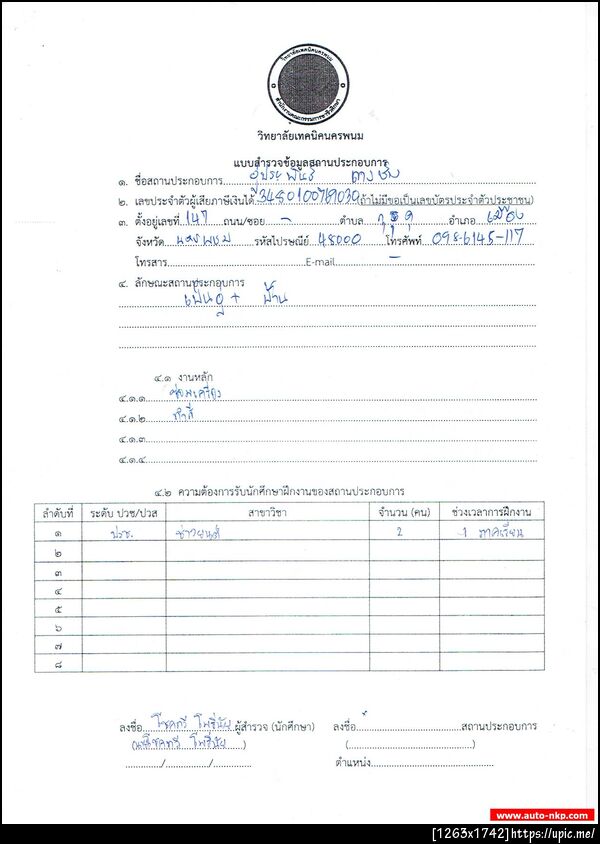 วิทยาลัยเทคนิคนครพนม
สำนักงานคณะกรรมการอาชีวศึกษา
วิทยาลัยเทคนิคนครพนม
แบบสำรวจข้อมูลสถานประกอบการ
๑. ชื่อสถานประกอบการ อู่ประพันธ์
๒. เลขประจำตัวผู้เสียภาษีเงินได้ (ถ้าไม่มีขอเป็นเลขบัตรประจำตัวประชาชน)
๓. ตั้งอยู่เลขที่ 147 ถนน/ซอย - ตำบล อำเภอ เมือง
จังหวัด นครพนม รหัสไปรษณีย์ 48000 โทรศัพท์ 098-6145-117
โทรสาร E-mail -
๔. ลักษณะสถานประกอบการ
เป็นอู่ + บ้าน
๔.๑ งานหลัก
๔.๑.๑ ซ่อมเครื่อง
๔.๑.๒ ทำสี
๔.๑.๓
๔.๑.๔
๔.๒ ความต้องการรับนักศึกษาฝึกงานของสถานประกอบการ
ลำดับที่ ระดับ ปวช/ปวส สาขาวิชา จำนวน (คน) ช่วงเวลาการฝึกงาน
๑ ปวช. ช่างยนต์ 2 1 ภาคเรียน
๒
๓
๔
๕
๖
๗
๘
ลงชื่อ โชคทวี โพธิ์ชัย ผู้สำรวจ (นักศึกษา) ลงชื่อ สถานประกอบการ
(โชคทวี โพธิ์ชัย) ( )
/ / ตำแหน่ง
www.auto-nkp.com
[1263x1742]https://upic.me/